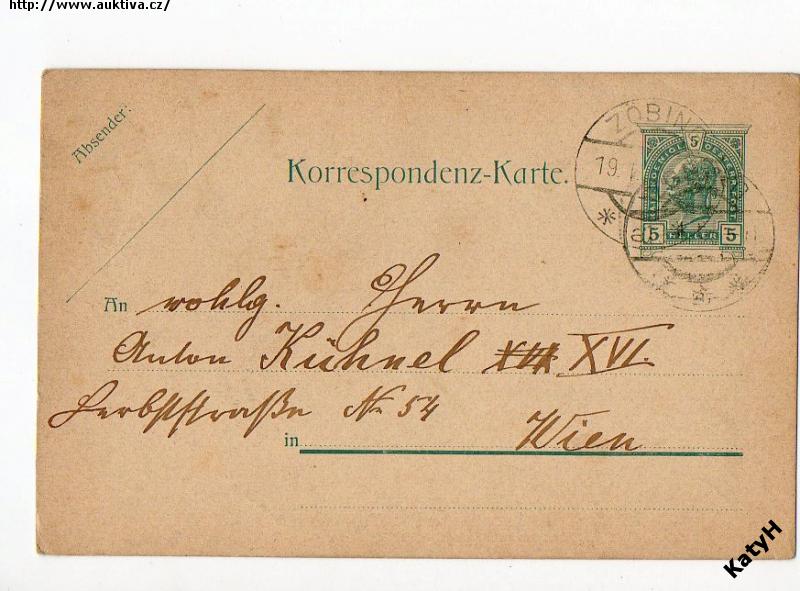 http://www.auktiva.cz/
Absender:
Korrespondenz-Karte.
ZÖBING
19.
5
5 HELLER 5
An wohlg. Herrn
Anton Kühnel XVI.
Herbststraße No 54
in Wien
KatyH